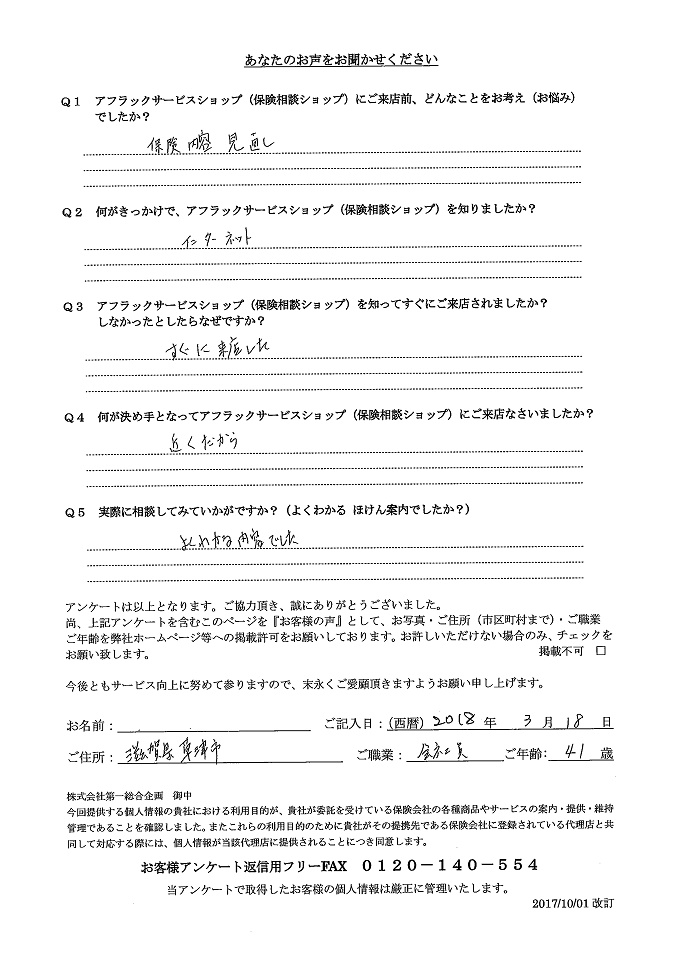 あなたのお声をお聞かせください
Q1 アフラックサービスショップ（保険相談ショップ）にご来店前、どんなことをお考え（お悩み）
でしたか？
保険内容見直し
Q2 何がきっかけで、アフラックサービスショップ（保険相談ショップ）を知りましたか？
インターネット
Q3 アフラックサービスショップ（保険相談ショップ）を知ってすぐにご来店されましたか？
しなかったとしたらなぜですか？
すぐに来店した
Q4 何が決め手となってアフラックサービスショップ（保険相談ショップ）にご来店なさいましたか？
近くだから
Q5 実際に相談してみていかがですか？（よくわかる ほけん案内でしたか？）
よくわかる内容でした
アンケートは以上となります。ご協力頂き、誠にありがとうございました。
尚、上記アンケートを含むこのページを『お客様の声』として、お写真・ご住所（市区町村まで）・ご職業
ご年齢を弊社ホームページ等への掲載許可をお願いしております。お許しいただけない場合のみ、チェックを
お願い致します。 掲載不可 □
今後ともサービス向上に努めて参りますので、末永くご愛顧頂きますようお願い申し上げます。
お名前： ご記入日：（西暦）2018年 3月18日
ご住所：滋賀県草津市 ご職業：会社員 ご年齢：41歳
株式会社第一総合企画 御中
今回提供する個人情報の貴社における利用目的が、貴社が委託を受けている保険会社の各種商品やサービスの案内・提供・維持
管理であることを確認しました。またこれらの利用目的のために貴社がその提携先である保険会社に登録されている代理店と共
同して対応する際には、個人情報が当該代理店に提供されることにつき同意します。
お客様アンケート返信用フリーFAX 0120－140－554
当アンケートで取得したお客様の個人情報は厳正に管理いたします。
2017/10/01 改訂